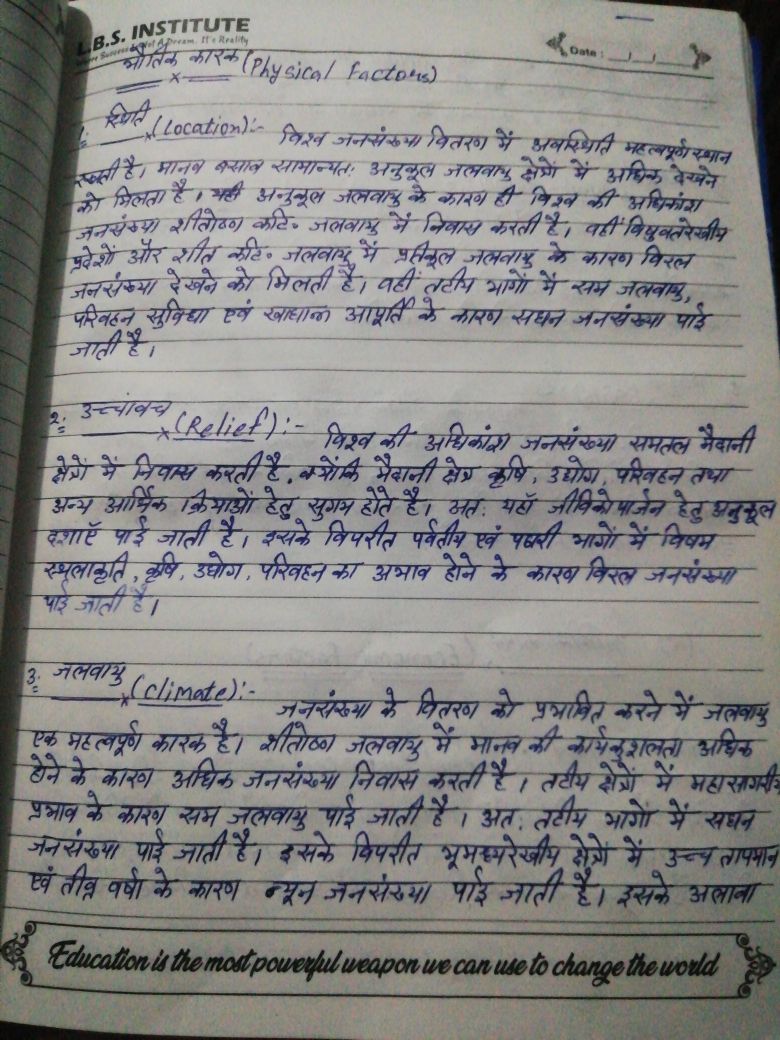 L.B.S. INSTITUTE
Where Success is Not A Dream. It's Reality
Date :
भौतिक कारक (Physical Factors)
1: स्थिति (Location):-
विश्व जनसंख्या वितरण में अवस्थिति महत्वपूर्ण स्थान
रखती है। मानव बसाव सामान्यतः अनुकूल जलवायु क्षेत्रों में अधिक देखने
को मिलता है। यही अनुकूल जलवायु के कारण ही विश्व की अधिकांश
जनसंख्या शीतोष्ण कटि॰ जलवायु में निवास करती है। वहीं विषुवतरेखीय
प्रदेशों और शीत कटि॰ जलवायु में प्रतिकूल जलवायु के कारण विरल
जनसंख्या देखने को मिलती है। वहीं तटीय भागों में सम जलवायु,
परिवहन सुविधा एवं खाद्यान्न आपूर्ति के कारण सघन जनसंख्या पाई
जाती है।
2: उच्चावच (Relief):-
विश्व की अधिकांश जनसंख्या समतल मैदानी
क्षेत्रों में निवास करती है, क्योंकि मैदानी क्षेत्र कृषि, उद्योग, परिवहन तथा
अन्य आर्थिक क्रियाओं हेतु सुगम होते है। अत: यहाँ जीविकोपार्जन हेतु अनुकूल
दशाएँ पाई जाती है। इसके विपरीत पर्वतीय एवं पठारी भागों में विषम
स्थलाकृति, कृषि, उद्योग, परिवहन का अभाव होने के कारण विरल जनसंख्या
पाई जाती है।
3: जलवायु (Climate):-
जनसंख्या के वितरण को प्रभावित करने में जलवायु
एक महत्वपूर्ण कारक है। शीतोष्ण जलवायु में मानव की कार्यकुशलता अधिक
होने के कारण अधिक जनसंख्या निवास करती है। तटीय क्षेत्रों में महासागरीय
प्रभाव के कारण सम जलवायु पाई जाती है। अत: तटीय भागों में सघन
जनसंख्या पाई जाती है। इसके विपरीत भूमध्यरेखीय क्षेत्रों में उच्च तापमान
एवं तीव्र वर्षा के कारण न्यून जनसंख्या पाई जाती है। इसके अलावा
Education is the most powerful weapon we can use to change the world